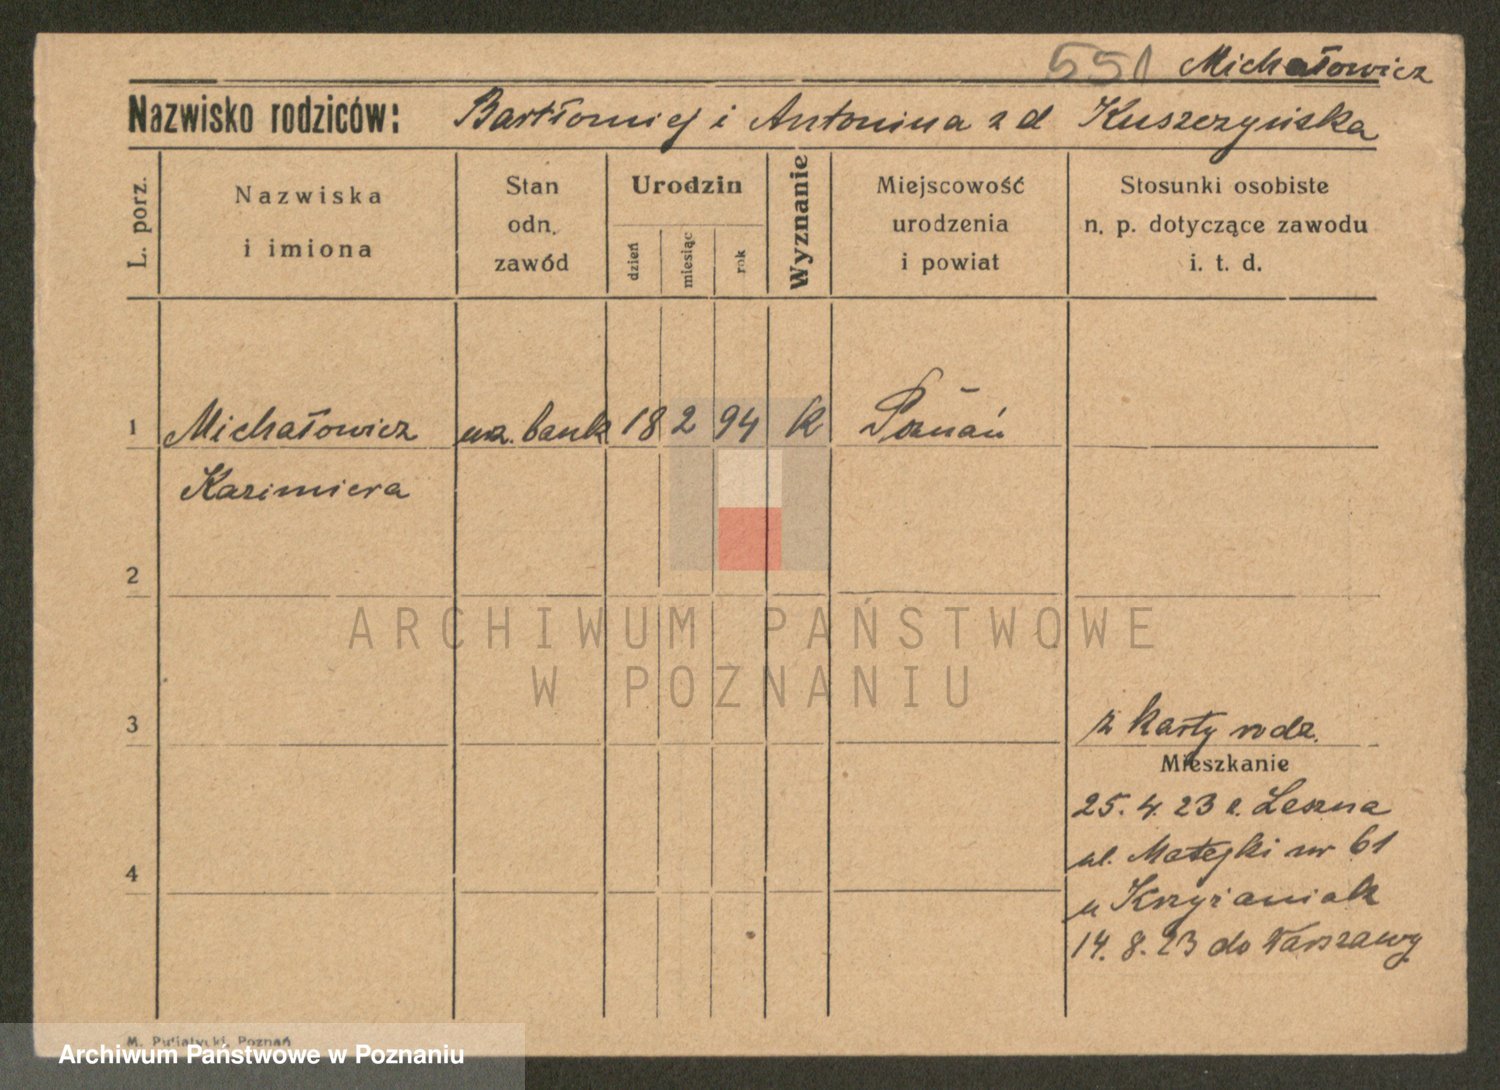 551 Michałowicz
Nazwisko rodziców: Bartłomiej i Antonina z d Kuszczyńska
L. porz.
Nazwiska
i imiona
Stan
odn.
zawód
Urodzin
dzień
miesiąc
rok
Wyznanie
Miejscowość
urodzenia
i powiat
Stosunki osobiste
n. p. dotyczące zawodu
i. t. d.
1 Michałowicz urz. bank 18 2 94 k Poznań
Kazimiera
2
ARCHIWUM PAŃSTWOWE
W POZNANIU
3
z karty rodz.
Mieszkanie
25. 4. 23 z. Leszna
ul. Matejki nr 61
4
u Krzyżaniak
14. 8. 23 do Warszawy
M. Putiatycki, Poznań
Archiwum Państwowe w Poznaniu